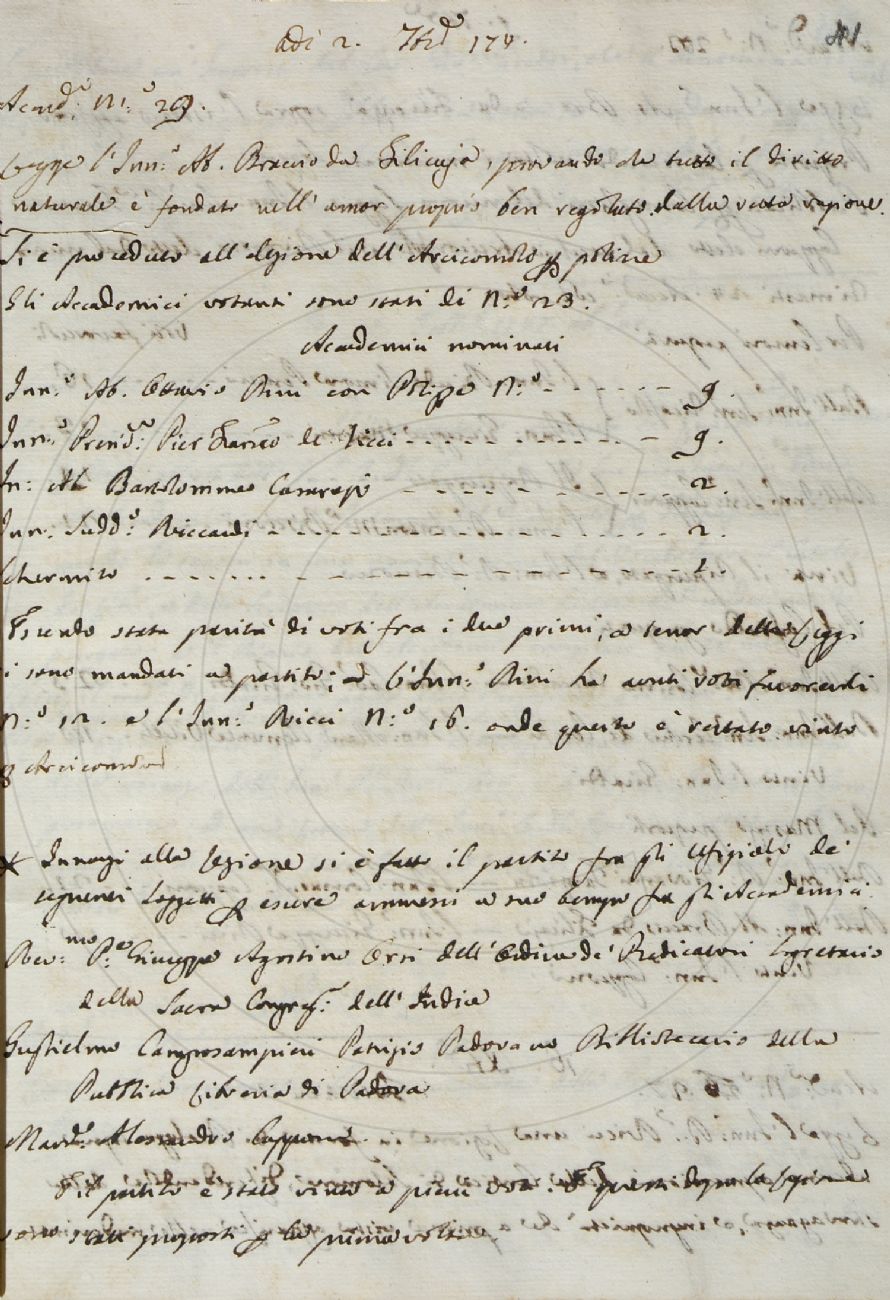 adì 2. 174.
41
Accad.ª N.º 29.
Legge l'Inn.º Ab. Braccio da Filicaja, provando che tutto il diritto
naturale è fondato nell'amor proprio ben regolato dalla retta ragione.
Si è proceduto all'elezione dell'Arciconsolo p polizze
Gli Accademici votanti sono stati di N.º 23.
Accademici nominati
Inn.º Ab. Ottavio Rini con Polizze N.º - - - - - - - 9.
Inn.º Pier Franc.º de Ricci - - - - - - - - - - 9.
In: Ab Bartolommeo - - - - - - - - - - 2.
Inn. Sudd.º Riccardi - - - - - - - - - - - - - - - 2.
Schermito - - - - - - - - - - - - - - - - - - 1.
Essendo stata parità di voti fra i due primi, a tenor delle Leggi
si sono mandati a partito; ed l'Inn.º Rini ha avuti voti favorevoli
N.º 12. e l'Inn.º Ricci N.º 16. onde questo è restato vinto
p Arciconsolo
* Innanzi alla lezione si è fatto il partito fra gli Ufiziali de'
seguenti soggetti p essere ammessi a suo tempo fra gli Accademici
Rev.mo P.re Giuseppe Agostino Orsi dell'Ordine de' Predicatori Segretario
della Sacra Congreg.: dell'Indice
Guglielmo Camposampieri Patrizio Padovano Bibliotecario della
Pubblica Libreria di Padova
March.: Alessandro Capponi
Il partito è stato vinto a pieni voti. E questi dopo la lezione
sono stati proposti p la prima volta